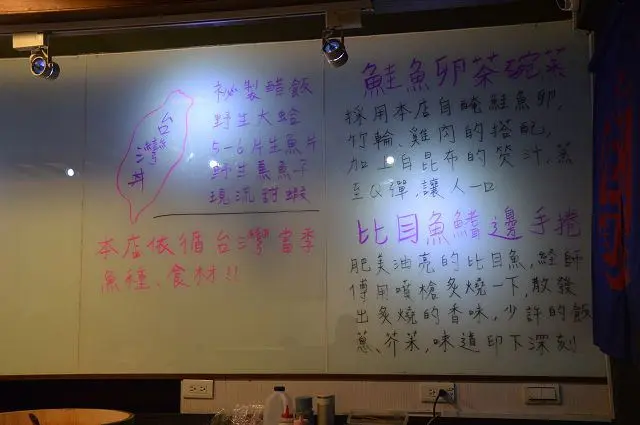 台灣丼
祕製醋飯
野生大蛤
5-6片生魚片
野生魚干
現流甜蝦
本店依循台灣當季
魚種、食材!!
鮭魚卵茶碗蒸
採用本店自醃鮭魚卵,
竹輪、雞肉的搭配,
加上自昆布的熬汁,蒸
至Q彈,讓人一口
比目魚鰭邊手捲
肥美油亮的比目魚,經師
傅用噴槍炙燒一下,散發
出炙燒的香味,少許的飯
蔥、芥菜,味道印下深刻